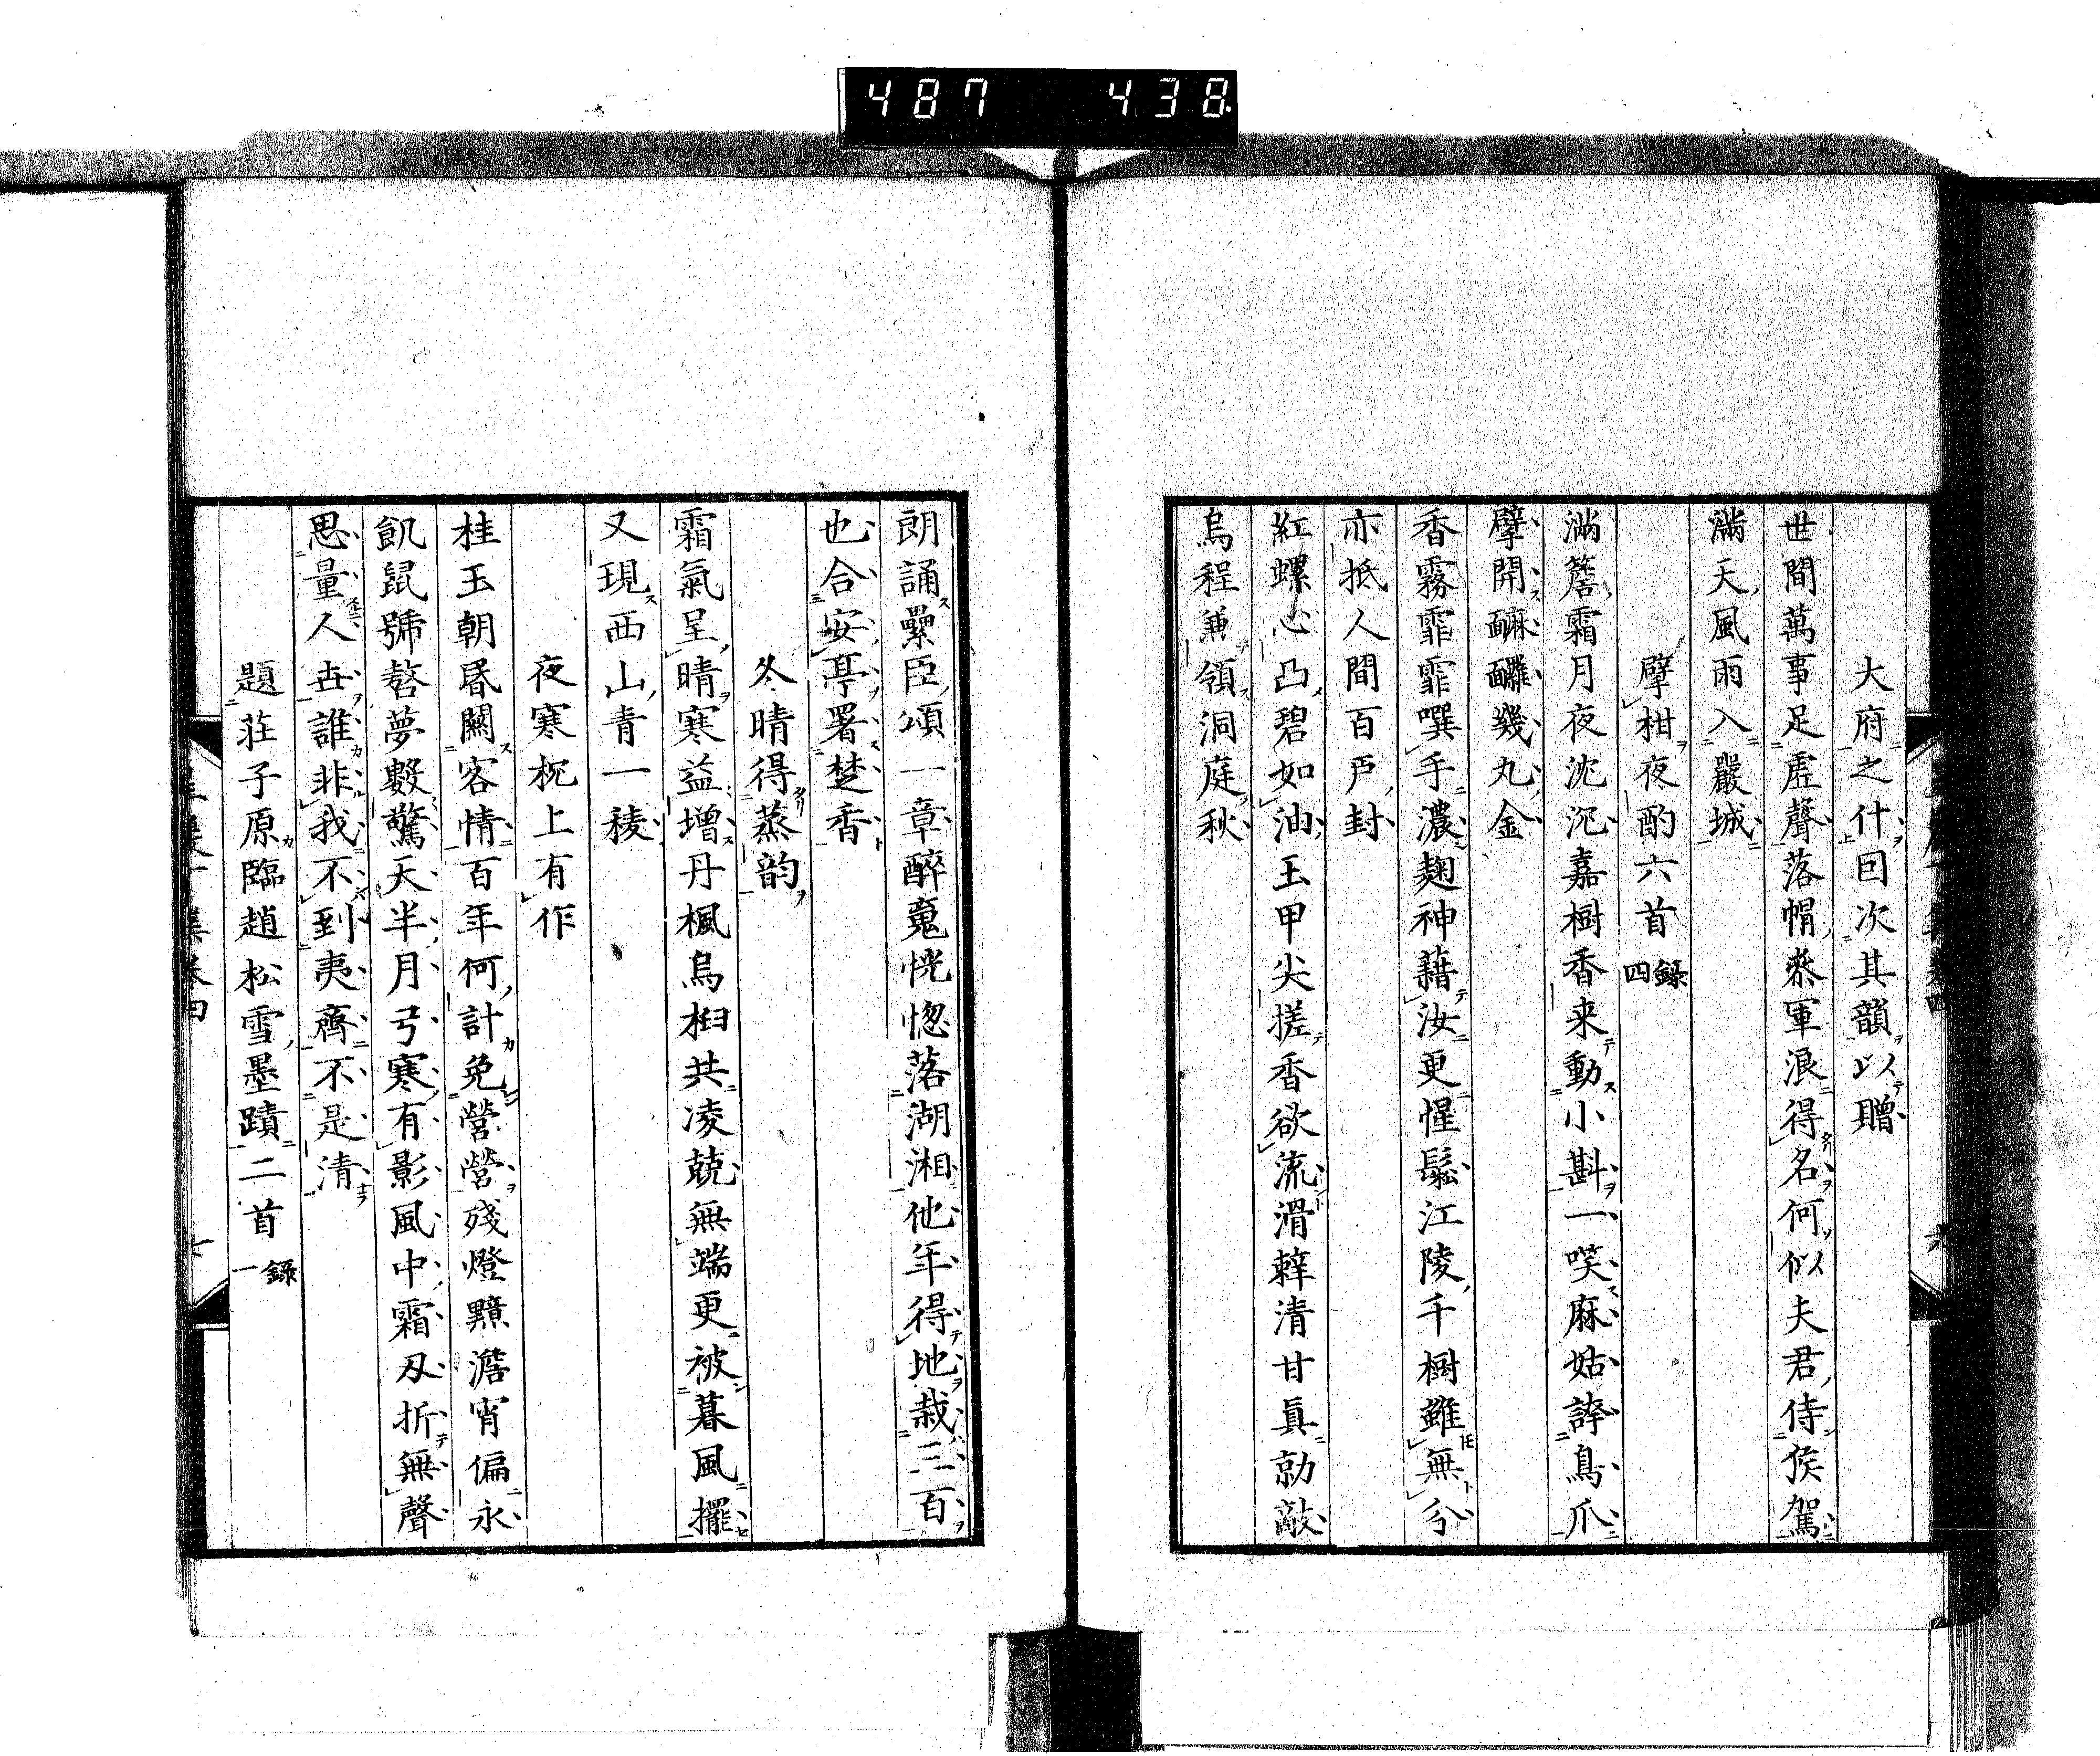 487 438
大府之什因次其韻以贈
世間萬事足虛聲落帽參軍浪得名何似夫君侍侯駕
滿天風雨入嚴城
擘柑夜酌六首 錄四
滿簷霜月夜沈沉嘉樹香来動小斟一噗麻姑誇鳥爪
擘開䤍䤓幾丸金
香霧霏霏噀手濃麹神藉汝更惺鬆江陵千樹雖無分
亦抵人間百戸封
紅螺心凸碧如油玉甲尖搓香欲流滑辢清甘真勍敵
烏程兼領洞庭秋
朗誦纍臣頌一章醉䰟恍惚落湖湘他年得地栽三百
也合安亭署楚香
冬晴得蒸韵
霜氣呈晴寒益增丹楓烏桕共凌兢無端更被暮風擺
又現西山青一稜
夜寒枕上有作
桂玉朝昏關客情百年何計免營營殘燈黯澹宵偏永
飢鼠號嗸夢數驚天半月弓寒有影風中霜刃折無聲
思量人世誰非我不到夷齊不是清
題莊子原臨趙松雪墨蹟二首 錄一